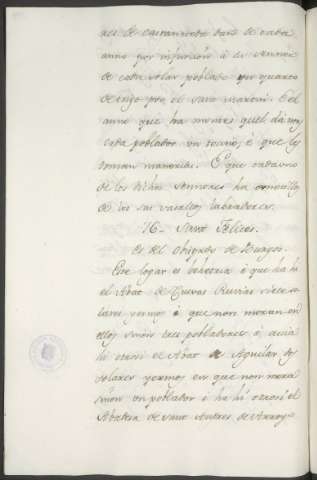 anno por infurcion á su sennor
de cada solar poblado un quarto
de trigo por el Sant Martin. E el
anno que ha menores quel dá
cada poblador un tocino, é que les
toman manerias. E que cada uno
de los dichos sennores ha omecillo
de los sus vasallos labradores.
76 - Sant Felices.
Es del Obispado de Burgos.
Este logar es behetria é que ha hi
el Abat de Cuevas Ruvias siete so
lares yermos é que non moran en
ellos sinon tres pobladores é avia
hi otrosi el Abat de Aguilar dos
solares yermos en que non mora
sinon un poblador é ha hi otrosi el
Abadesa de Sant Andres de Arroyo